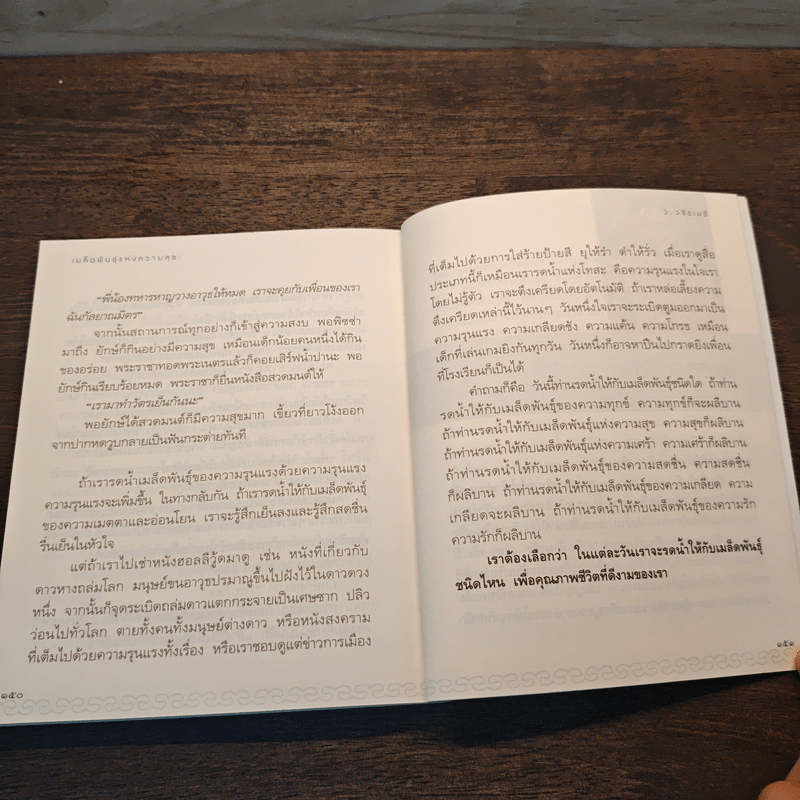 เมล็ดพันธุ์แห่งความสุข
"พี่น้องทหารหาญวางอาวุธให้หมด เราจะคุยกับเพื่อนของเรา
ฉันกัลยาณมิตร"
จากนั้นสถานการณ์ทุกอย่างก็เข้าสู่ความสงบ พอพิซซ่า
มาถึง ยักษ์ก็กินอย่างมีความสุข เหมือนเด็กน้อยคนหนึ่งได้กิน
ของอร่อย พระราชาทอดพระเนตรแล้วก็คอยเสิร์ฟน้ำปานะ พอ
ยักษ์กินเรียบร้อยหมด พระราชาก็ยื่นหนังสือสวดมนต์ให้
"เรามาทำวัตรเย็นกันนะ"
พอยักษ์ได้สวดมนต์ก็มีความสุขมาก เขี้ยวที่ยาวโง้งออก
จากปากหดวูบกลายเป็นฟันกระต่ายทันที
ถ้าเรารดน้ำเมล็ดพันธุ์ของความรุนแรงด้วยความรุนแรง
ความรุนแรงจะเพิ่มขึ้น ในทางกลับกัน ถ้าเรารดน้ำให้กับเมล็ดพันธุ์
ของความเมตตาและอ่อนโยน เราจะรู้สึกเย็นลงและรู้สึกสดชื่น
รื่นเย็นในหัวใจ
แต่ถ้าเราไปเช่าหนังฮอลลีวู้ดมาดู เช่น หนังที่เกี่ยวกับ
ดาวหางถล่มโลก มนุษย์ขนอาวุธปรมาณูขึ้นไปฝังไว้ในดาวดวง
หนึ่ง จากนั้นก็จุดระเบิดถล่มดาวแตกกระจายเป็นเศษซาก ปลิว
ว่อนไปทั่วโลก ตายทั้งคนทั้งมนุษย์ต่างดาว หรือหนังสงคราม
ที่เต็มไปด้วยความรุนแรงทั้งเรื่อง หรือเราชอบดูแต่ข่าวการเมือง
๑๕๐
ว. วชิรเมธี
ที่เต็มไปด้วยการใส่ร้ายป้ายสี ยุให้รำ ตำให้รั่ว เมื่อเราดูสื่อ
ประเภทนี้ก็เหมือนเรารดน้ำแห่งโทสะ คือความรุนแรงในใจเรา
โดยไม่รู้ตัว เราจะตึงเครียดโดยอัตโนมัติ ถ้าเราหล่อเลี้ยงความ
ตึงเครียดเหล่านี้ไว้นานๆ วันหนึ่งใจเราจะระเบิดตูมออกมาเป็น
ความรุนแรง ความเกลียดชัง ความแค้น ความโกรธ เหมือน
เด็กที่เล่นเกมยิงกันทุกวัน วันหนึ่งก็อาจหาปืนไปกราดยิงเพื่อน
ที่โรงเรียนก็เป็นได้
คำถามก็คือ วันนี้ท่านรดน้ำให้กับเมล็ดพันธุ์ชนิดใด ถ้าท่าน
รดน้ำให้กับเมล็ดพันธุ์ของความทุกข์ ความทุกข์ก็จะผลิบาน
ถ้าท่านรดน้ำให้กับเมล็ดพันธุ์แห่งความสุข ความสุขก็ผลิบาน
ถ้าท่านรดน้ำให้กับเมล็ดพันธุ์แห่งความเศร้า ความเศร้าก็ผลิบาน
ถ้าท่านรดน้ำให้กับเมล็ดพันธุ์ของความสดชื่น ความสดชื่น
ก็ผลิบาน ถ้าท่านรดน้ำให้กับเมล็ดพันธุ์ของความเกลียด ความ
เกลียดจะผลิบาน ถ้าท่านรดน้ำให้กับเมล็ดพันธุ์ของความรัก
ความรักก็ผลิบาน
เราต้องเลือกว่า ในแต่ละวันเราจะรดน้ำให้กับเมล็ดพันธุ์
ชนิดไหน เพื่อคุณภาพชีวิตที่ดีงามของเรา
๑๕๑